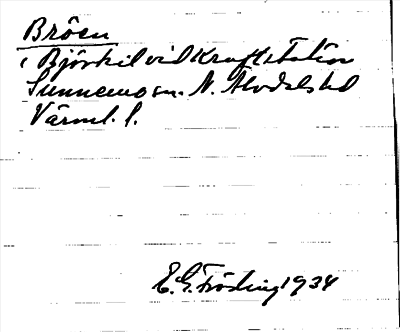 Bröen
i Björkil vid Kraftstation
Sunnemo sn. N. Älvdals hd
Värml. l.
E. G. Fröding 1934